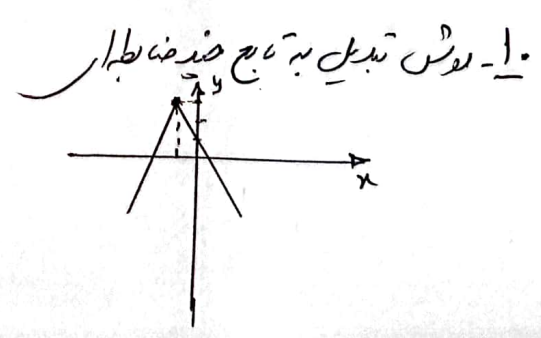 ۱۰- روش تبدیل به تابع چند ضابطه‌ای
y
x